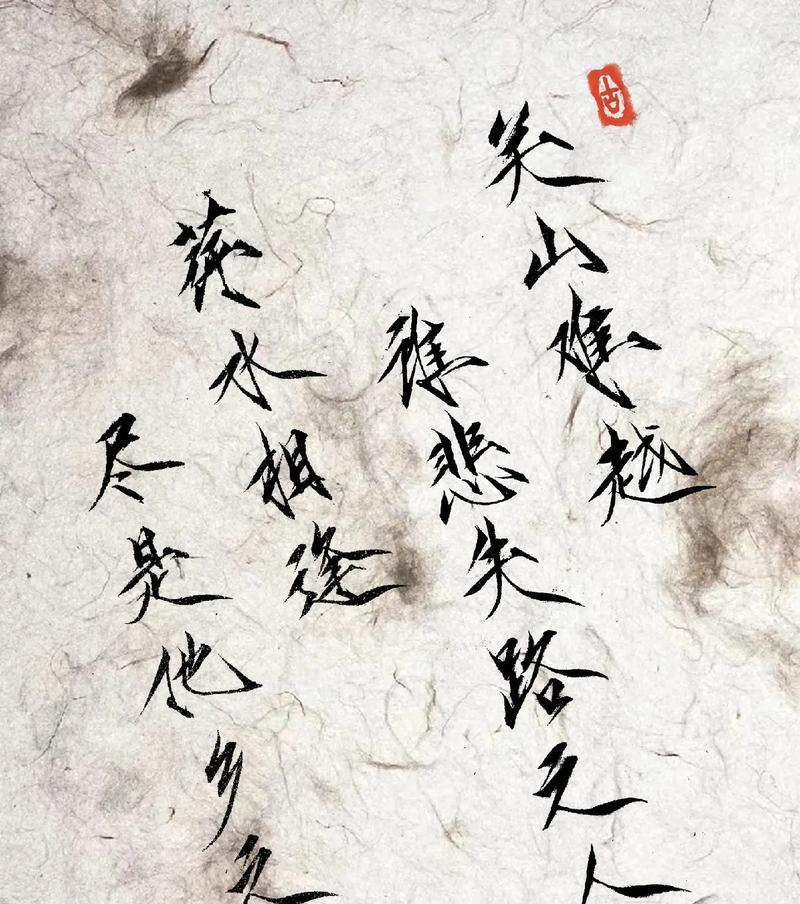 关山难越
谁悲失路之人
萍水相逢
尽是他乡之